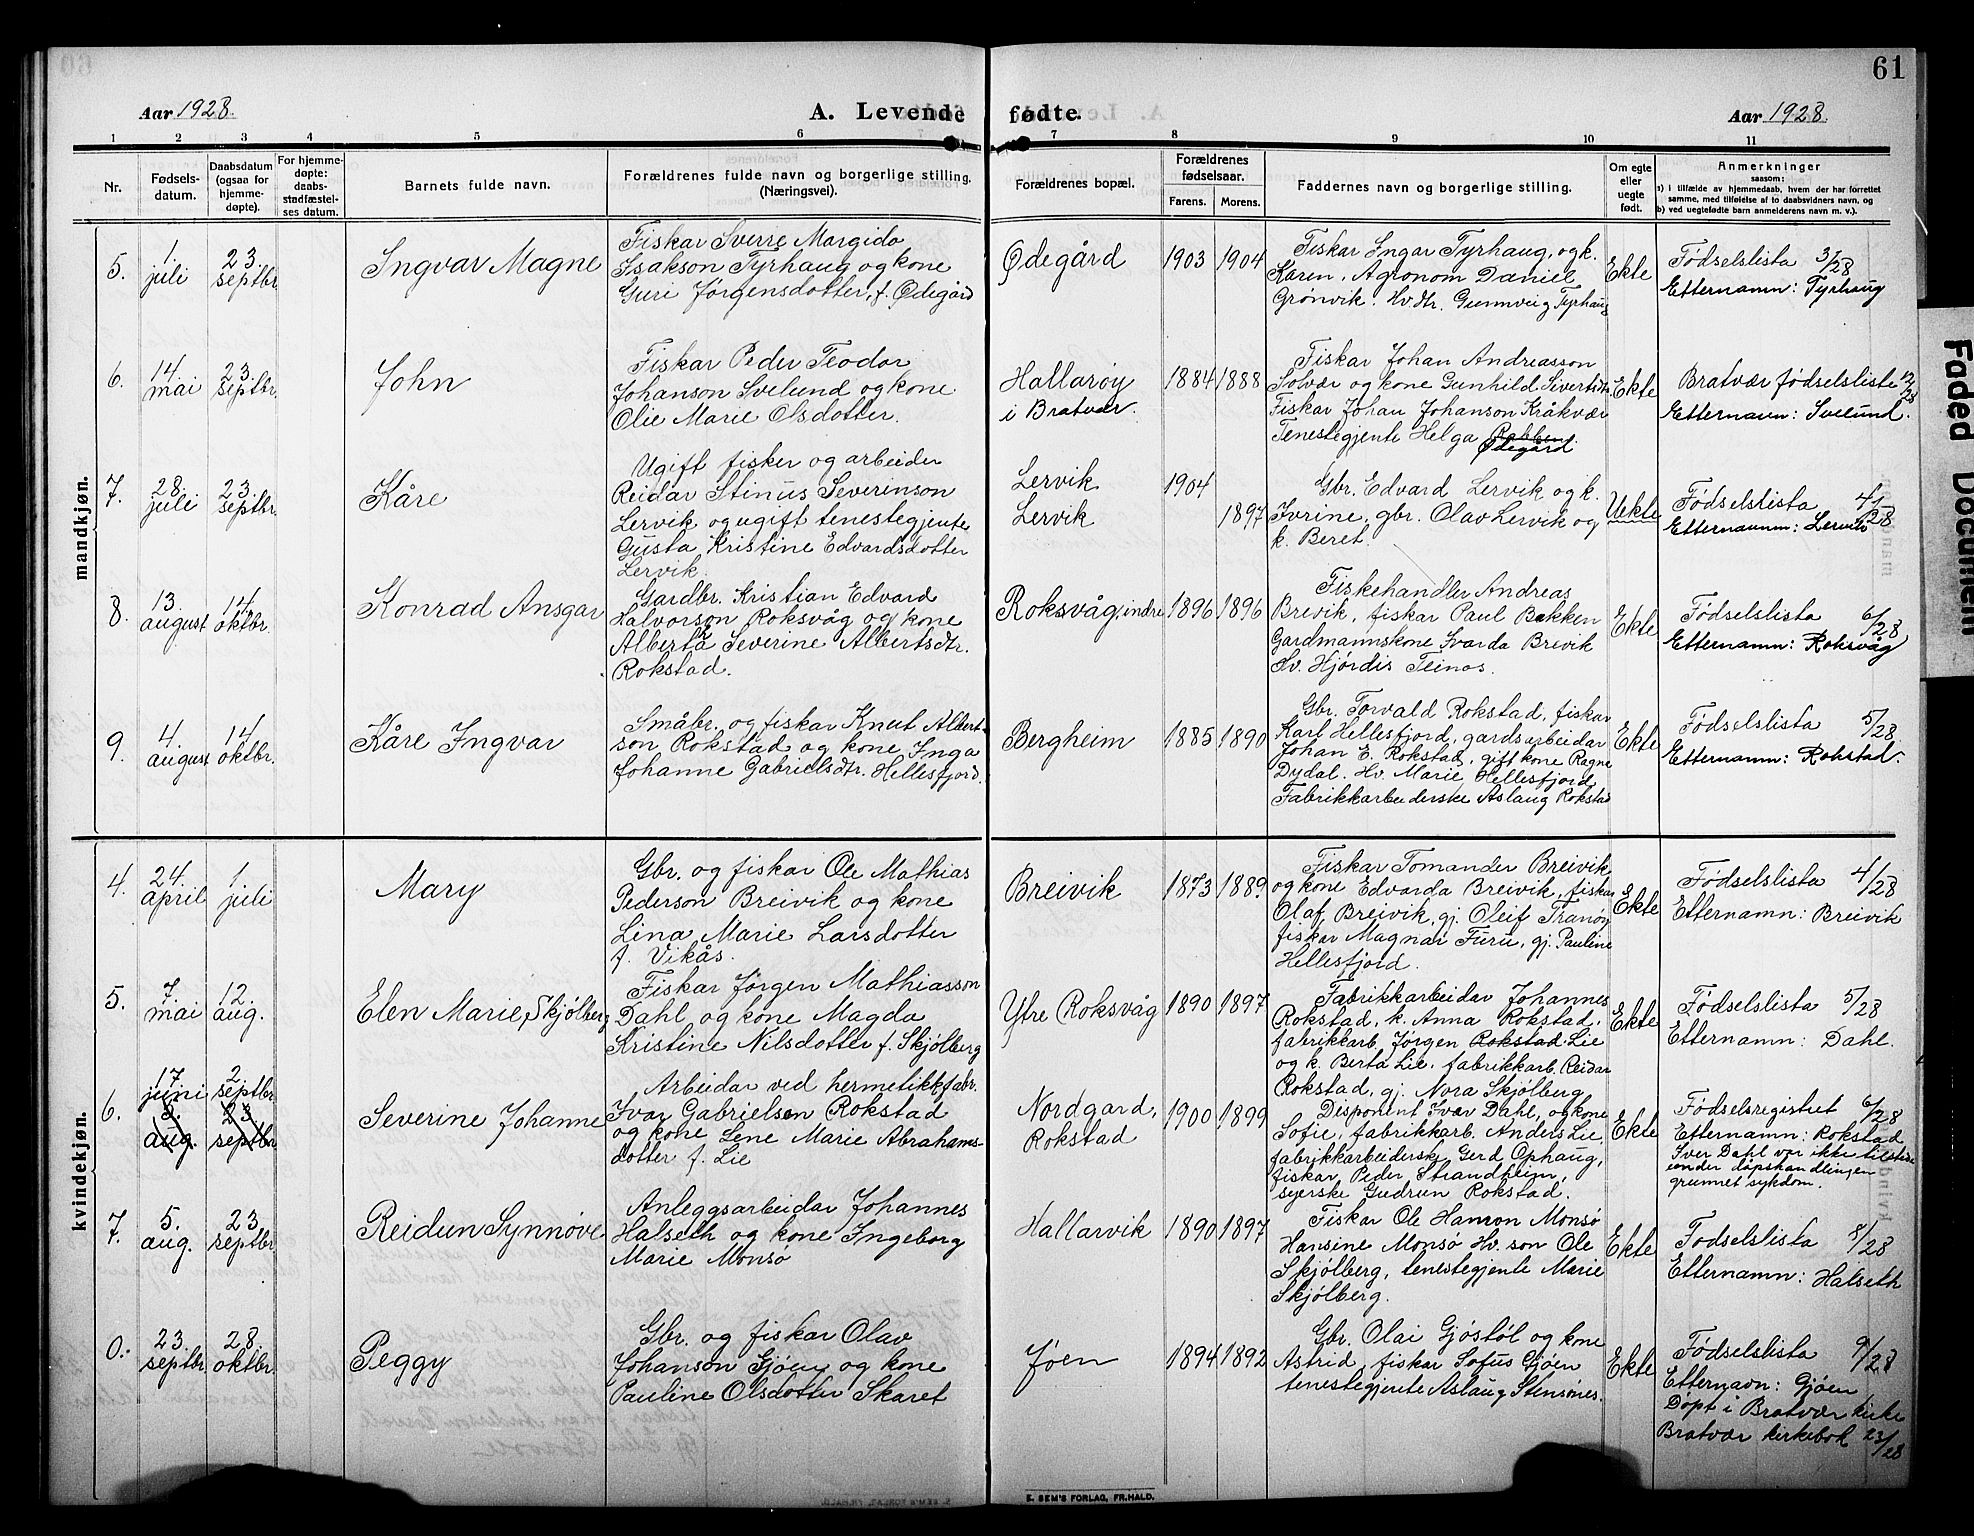 61
Aar 1928.
A. Levende fødte.
Aar 1928.
1 2 3 4 5 6 7 8 9 10 11
Nr.
Fødsels-
datum.
Daabsdatum
(ogsaa for
hjemme-
døpte).
For hjemme-
døpte:
daabs-
stadfæstel-
ses datum.
Barnets fulde navn.
Forældrenes fulde navn og borgerlige stilling.
(Næringsvei).
Forældrenes bopæl.
Forældrenes
fødselsaar.
Farens. Morens.
Faddernes navn og borgerlige stilling.
Om egte
eller
uegte
født.
Anmerkninger
saasom:
a) i tilfælde av hjemmedaab, hvem der har forrettet
samme, med tilføielse af to daabsvidners navn, og
b) ved uegtefødte barn anmelderens navn m. v.).
mandkjøn.
5.
1.
juli
23.
septbr.
Ingvar Magne
Fiskar Sverre Margido
Isakson Tyrhaug og kone
Guri Jørgensdotter, f. Ødegård
Ødegård
1903 1904
Fiskar Ingar Tyrhaug, og k.
Karen, Agronom Daniel
Grønvik. Hv.dtr. Gunnveig Tyrhaug
Ekte
Fødselslista 3/28
Etternamn: Tyrhaug
6.
14
mai
23.
septbr.
John
Fiskar Peder Teodor
Johanson Svelund og kone
Olie Marie Olsdotter.
Hallarøy
i Bratvær.
1884 1888
Fiskar Johan Andreasson
Solvær og kone Gunhild Sivertsdtr
Fiskar Johan Johanson Kråkvær
Tenestegjente Helga Rokken
Ødegård
Ekte
Bratvær fødselsliste 12/28
Etternavn: Svelund.
7.
28.
juli
23.
septbr.
Kåre
Ugift fisker og arbeider
Reidar Stinus Severinson
Lervik og ugift tenestegjente
Gusta Kristine Edvardsdotter
Lervik.
Lervik
Lervik
1904
1897
Gbr. Edvard Lervik og k.
Ivrine, gbr. Olav Lervik og
k. Beret.
Uekte
Fødselslista 4/28
Etternavnm: Lervik
8.
13.
august
14.
oktbr.
Konrad Ansgar
Gardbr. Kristian Edvard
Halvorson Roksvåg og kone
Alberta Severine Albertsdtr.
Rokstad.
Roksvåg, indre
1896 1896
Fiskehandler Andreas
Brevik, fiskar Paul Bakken
Gardmannskone Svarda Brevik
Hv. Hjørdis Teinas.
Ekte
Fødselslista 6/28
Etternamn: Roksvåg
9.
4.
august
14
oktbr.
Kåre Ingvar
Småbr. og fiskar Knut Albert-
son Rokstad og kone Inga
Johanne Gabrielsdtr. Hellesfjord.
Bergheim
1885 1890
Gbr. Torvald Rokstad, fiskar
Karl Hellesfjord, gardsarbeidar
Johan E. Rokstad, gift kone Ragna
Dydal. Hv. Marie Hellesfjord
Fabrikkarbeiderske Aslaug Rokstad
Ekte
Fødselslista 5/28
Etternamn: Rokstad.
kvindekjøn.
4.
24.
april
1.
juli
Mary
Gbr. og fiskar Ole Mathias
Pederson Breivik og kone
Lina Marie Larsdotter
f. Vikås.
Breivik
1873 1889
Fiskar Tomander Breivik
og kone Edvarda Breivik, fiskar
Olaf Breivik, gj. Oleif Tranøy
fiskar Magnar Furu, gj. Pauline
Hellesfjord.
Ekte
Fødselslista 4/28
Etternamn: Breivik
5.
7.
mai
12.
aug.
Elen Marie, Skjølberg
Fiskar Jørgen Mathiasson
Dahl og kone Magda
Kristine Nilsdotter f. Skjølberg
Ytre Roksvåg
1890 1897
Fabrikkarbeidar Johannes
Rokstad, k. Anna Rokstad,
fabrikkarb. Jørgen Rokstad Lie
og k. Berta Lie, fabrikkarb. Reidar
Rokstad, gj. Nora Skjølberg
Ekte
Fødselslista 5/28
Etternamn: Dahl.
6.
17
juni
5.
aug.
2.
septbr.
23
septbr.
Severine Johanne
Arbeidar ved hermetikkfabr.
Ivar Gabrielsen Rokstad
og kone Lene Marie Abrahams-
dotter f. Lie
Nordgard,
Rokstad
1900 1899
Disponent Ivar Dahl, og kone
Sofie, fabrikkarb. Anders Lie,
fabrikkarbeiderske Gerd Ophaug,
fiskar Peder Strandheim,
syerske Gudrun Rokstad.
Ekte
Fødselsregistret 6/28
Etternamn: Rokstad
Iver Dahl var ikke tilstede
under dåpshandlingen
grunnet sykdom.
7.
5.
aug.
23.
septbr
Reidun Synnøve
Anleggsarbeidar Johannes
Halseth og kone Ingeborg
Marie Monsø
Hallarvik
1890 1897
Fiskar Ole Hanson Monsø
Hansine Monsø Hv. son Ole
Skjølberg, tenestegjente Marie
Skjølberg.
Ekte
Fødselslista 8/28
Etternamn: Halseth
0.
23.
septbr.
28.
oktbr.
Peggy
Gbr. og fiskar Olav
Johanson Gjøen og kone
Pauline Olsdotter Skaret
Jøen
1894 1892
Gbr. Olai Gjøstøl og kone
Astrid, fiskar Sofus Gjøen
tenestegjente Aslaug Stensønes.
Ekte
Fødselslista 9/28
Etternavn: Gjøen
Døpt i Bratvær kirke
Bratvær kirkebok 23/28
E. SEM'S FORLAG, FR.HALD.
Faded Document